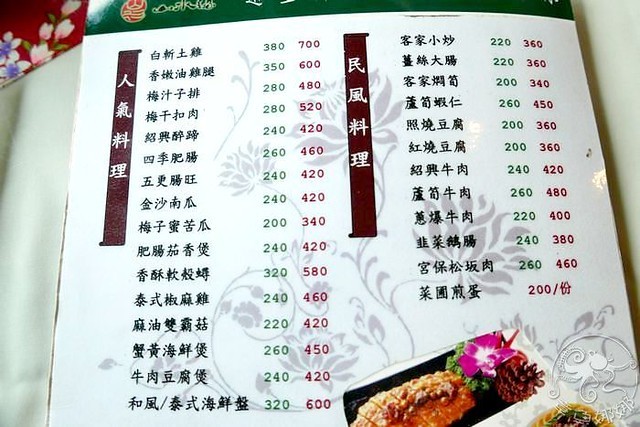 人氣料理
白斬土雞 380 700
香嫩油雞腿 350 600
梅汁子排 280 480
梅干扣肉 280 520
紹興醉蹄 240 420
四季肥腸 260 460
五更腸旺 240 420
金沙南瓜 240 420
梅子蜜苦瓜 200 340
肥腸茄香煲 240 420
香酥軟殼蟳 320 580
泰式椒麻雞 240 460
麻油雙霸菇 220 420
蟹黃海鮮煲 260 450
牛肉豆腐煲 240 420
和風/泰式海鮮盤 320 600
民風料理
客家小炒 220 360
薑絲大腸 220 360
客家燜筍 200 340
蘆筍蝦仁 260 450
照燒豆腐 200 360
紅燒豆腐 200 360
紹興牛肉 240 420
蘆筍牛肉 260 480
蔥爆牛肉 220 400
韭菜鵝腸 240 380
宮保松坂肉 260 460
菜圃煎蛋 200/份